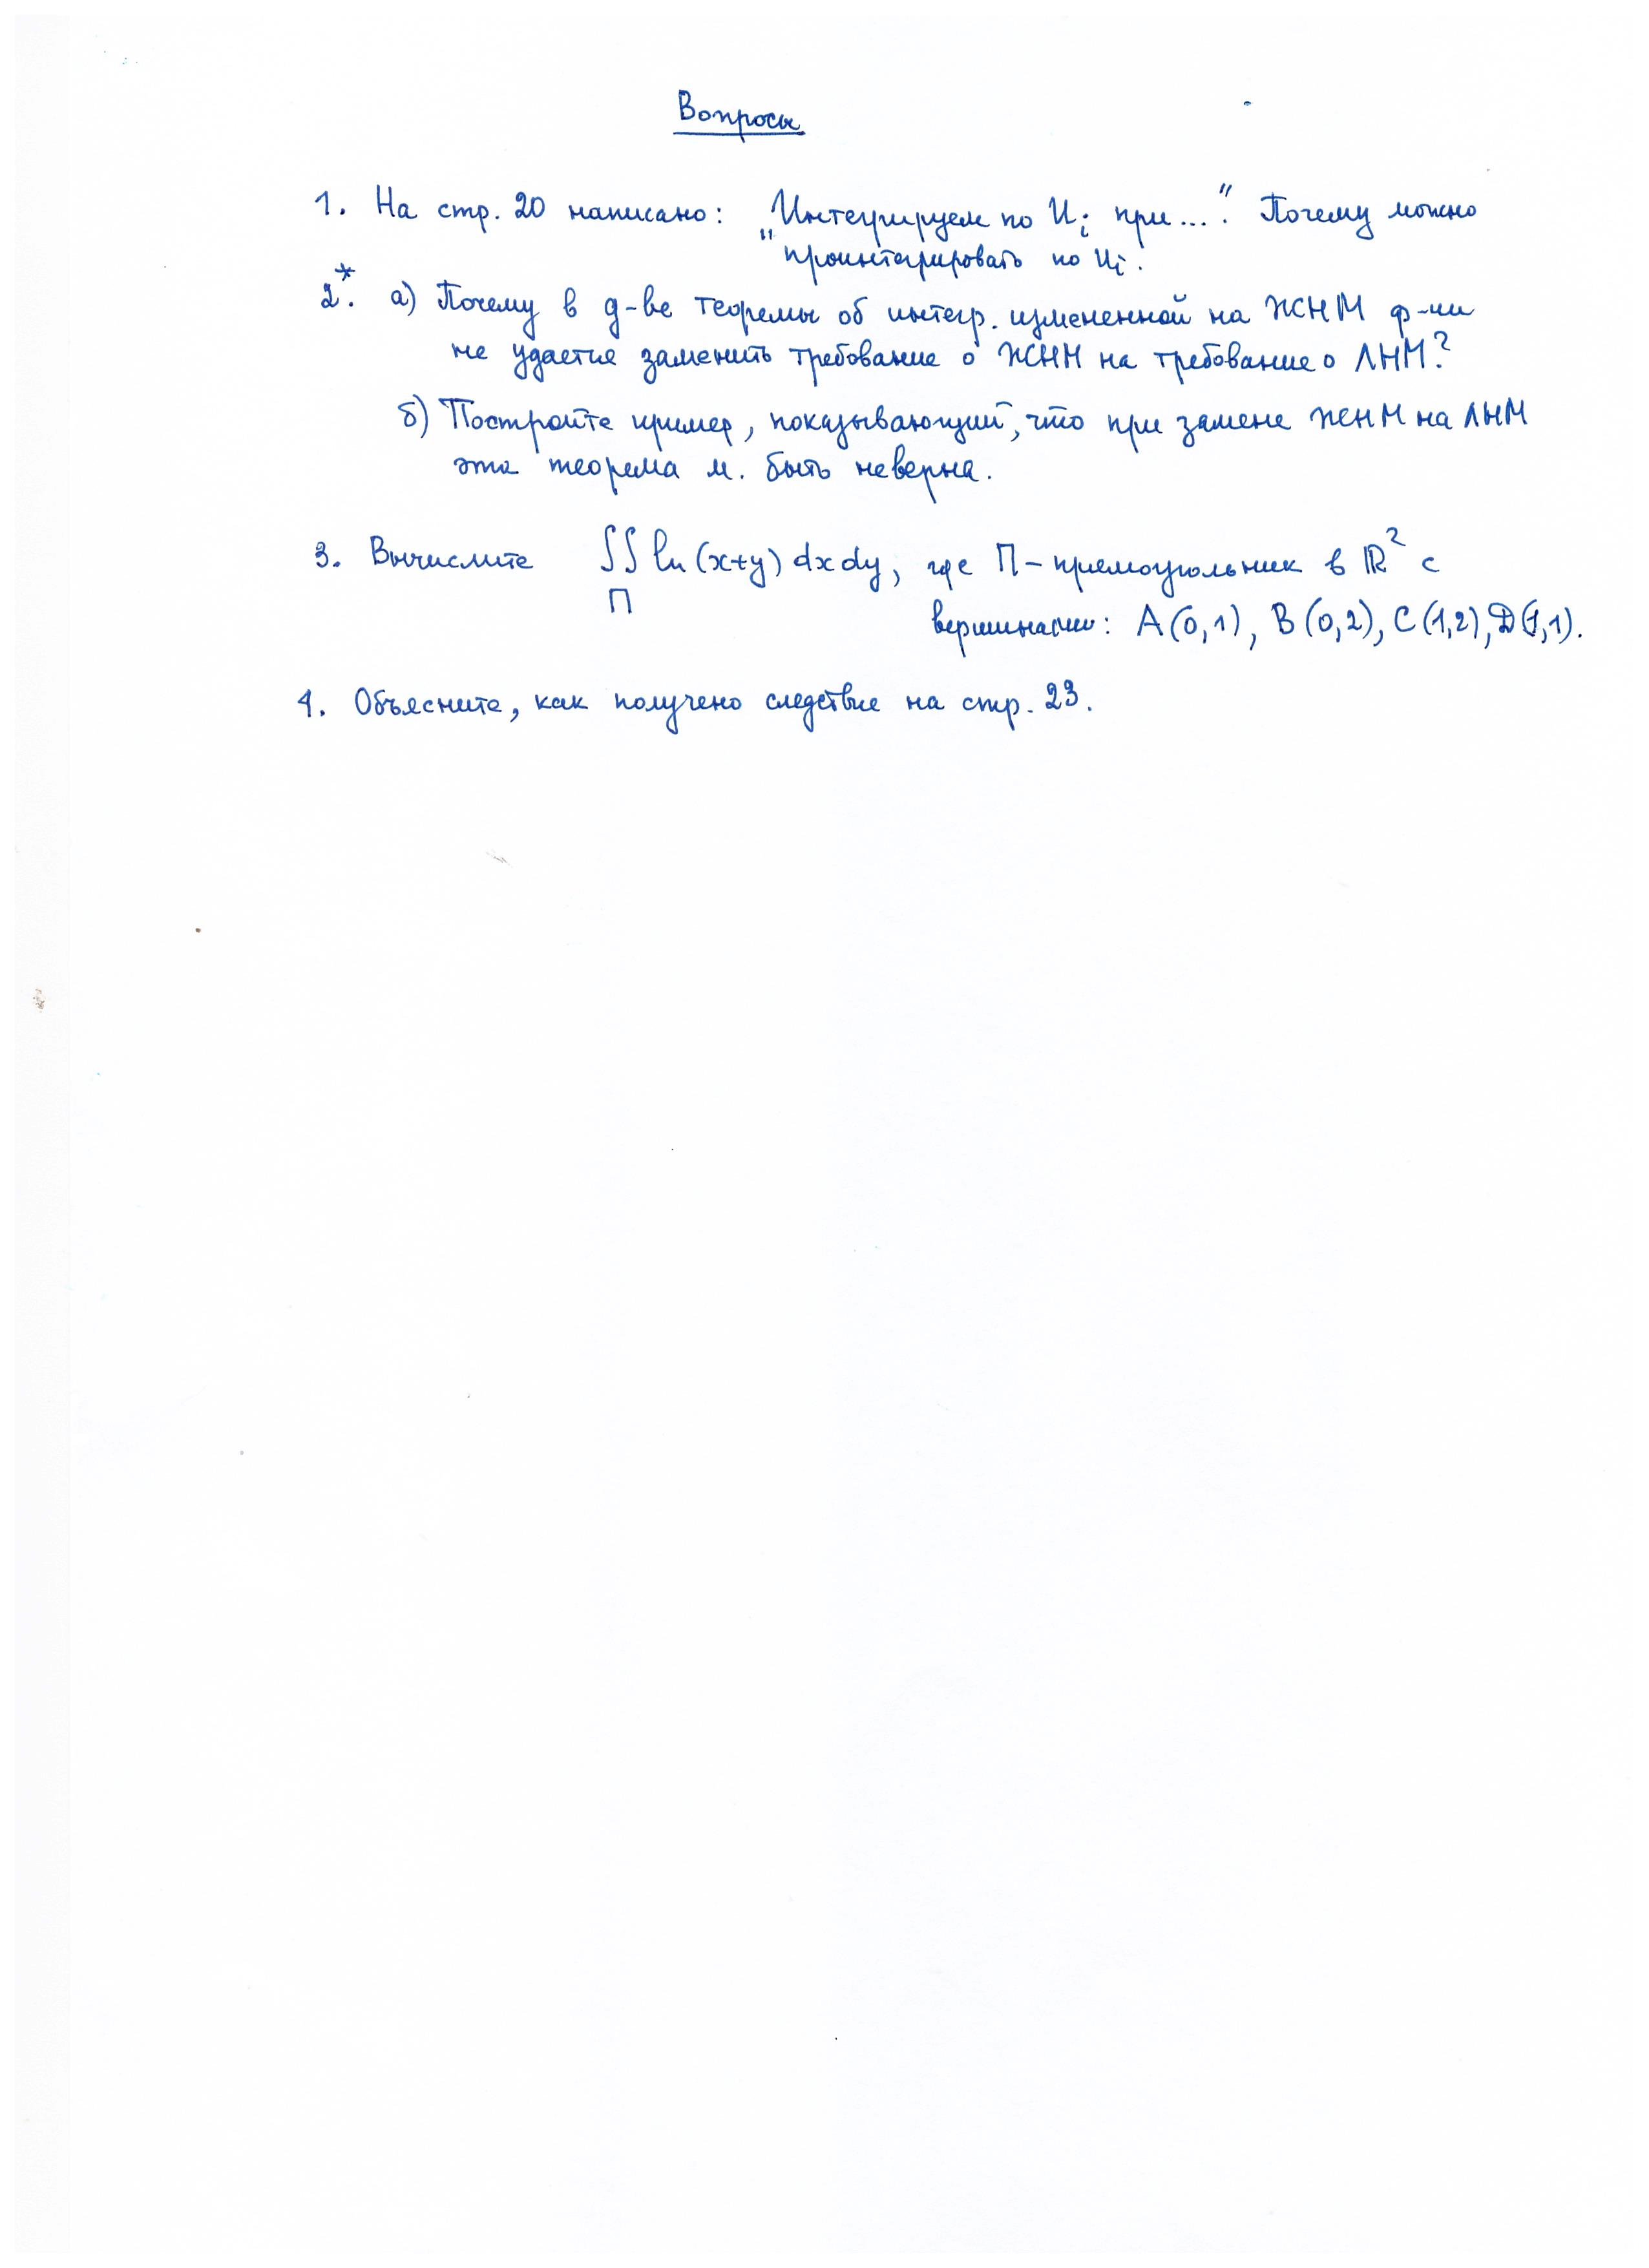 Вопросы
1. На стр. 20 написано: „Интегрируем по U_i при...". Почему можно
"проинтегрировать по U_i.
2*. а) Почему в д-ве теоремы об интегр. измененной на ЖСНМ ф-ии
не удается заменить требование о ЖСНМ на требование о ЛНМ?
б) Постройте пример, показывающий, что при замене ЖСНМ на ЛНМ
эта теорема м. быть неверна.
3. Вычислите ∫∫ ln(x+y) dx dy, где П - прямоугольник в ℝ² с
П
вершинами: A(0,1), B(0,2), C(1,2), D(1,1).
4. Объясните, как получено следствие на стр. 23.